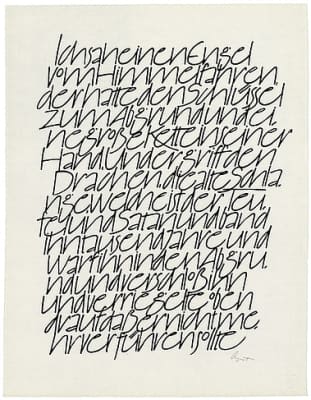 Ich sah einen Engel
vom Himmel fahren
der hatte den Schlüssel
zum Abgrund und ei
ne große Kette in seiner
Hand und er griff den
Drachen die alte Schla
nge welche ist der Teu
fel und Satan und band
ihn tausend Jahre und
warf ihn in den Abgru
nd und verschloß ihn
und verriegelte oben
drauf daß er nicht me
hr verführen sollte